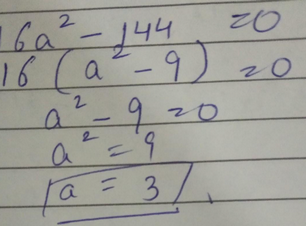 16a² - 144 = 0
16 (a² - 9) = 0
a² - 9 = 0
a² = 9
a = 3